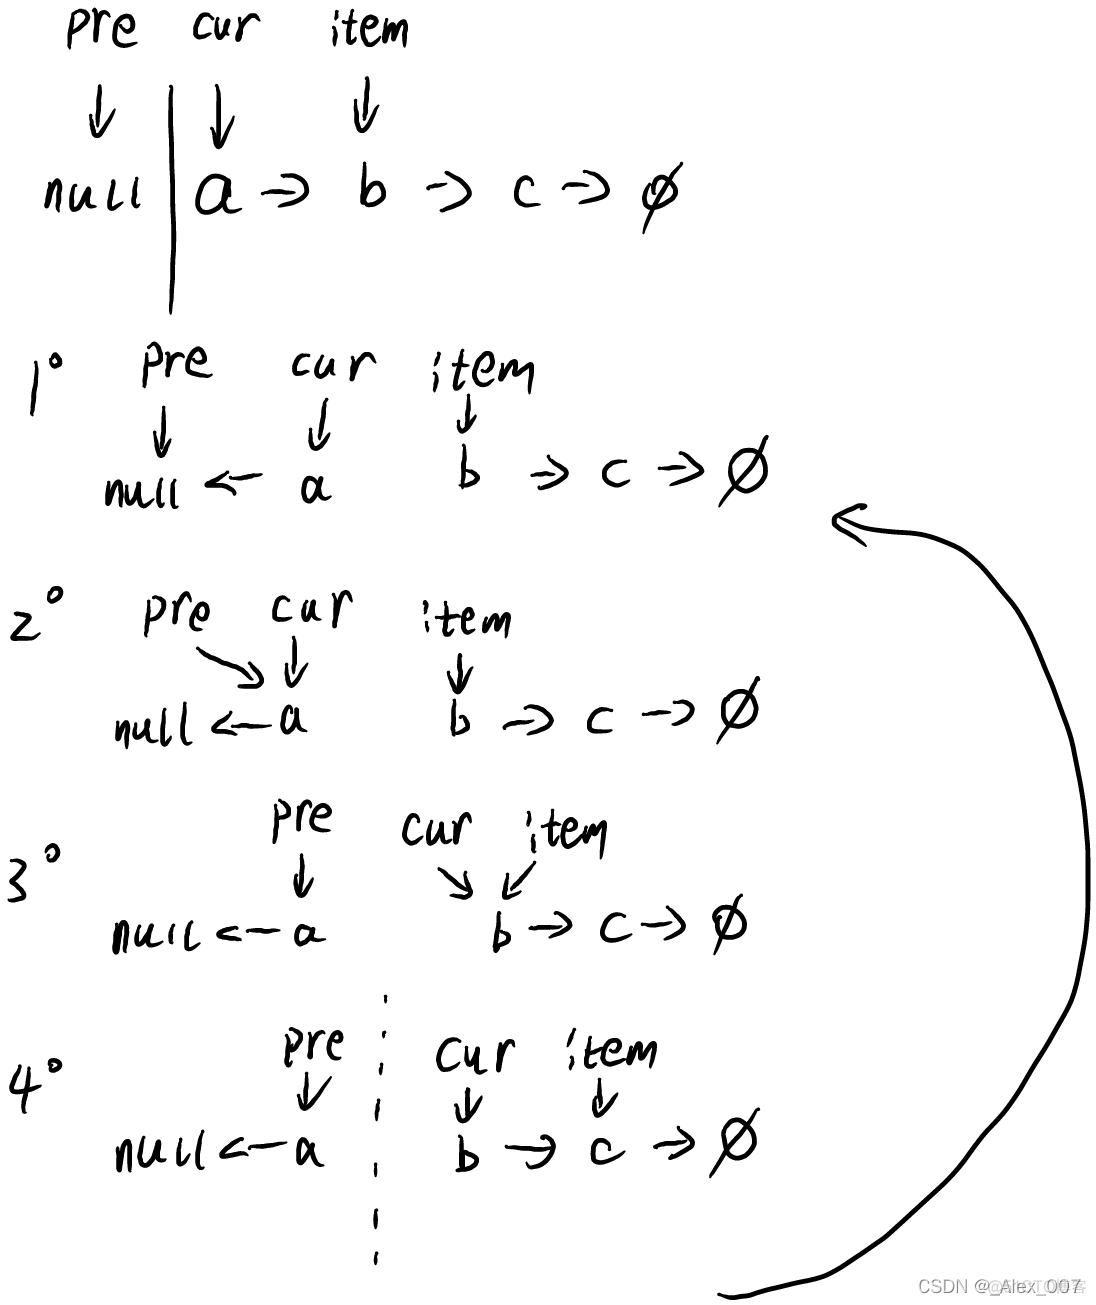 pre cur item
null a → b → c → ∅
1° pre cur item
null ← a b → c → ∅
2° pre cur item
null ← a b → c → ∅
3° pre cur item
null ← a b → c → ∅
4° pre cur item
null ← a b → c → ∅
CSDN @_Alex_007